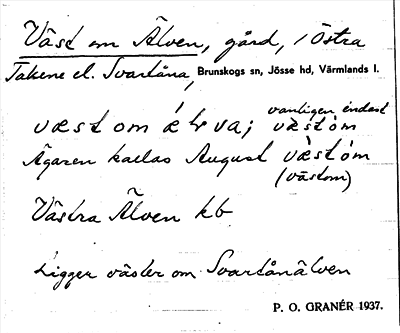 Väst om Älven, gård, i Östra
Takene el. Svartåna, Brunskogs sn, Jösse hd, Värmlands l.
væst om ælva; vanligen endast væstom
Ägaren kallas August væstom
(västom)
Västra Älven kb
Ligger väster om Svartånälven
P. O. GRANÉR 1937.